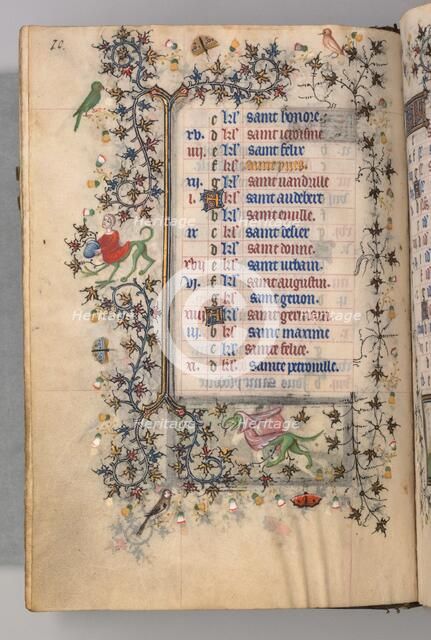 70.
c kl' saint honore.
xv. d kl' saint
iiij. e kl' saint felix
f kl' saint yves.
xij. g kl' saint uandrille
i. A kl' saint audebert
b kl' saint emille.
ix c kl' saint desier
d kl' saint donne.
xvij e kl' saint urbain.
vj. f kl' saint augustin.
g kl' saint
xiiij A kl' saint germain
iij b kl' saint maxime
c kl' sainte felice.
xi. d kl' sainte petronille.
Heritage Heritage
Heritage Heritage
Heritage Heritage